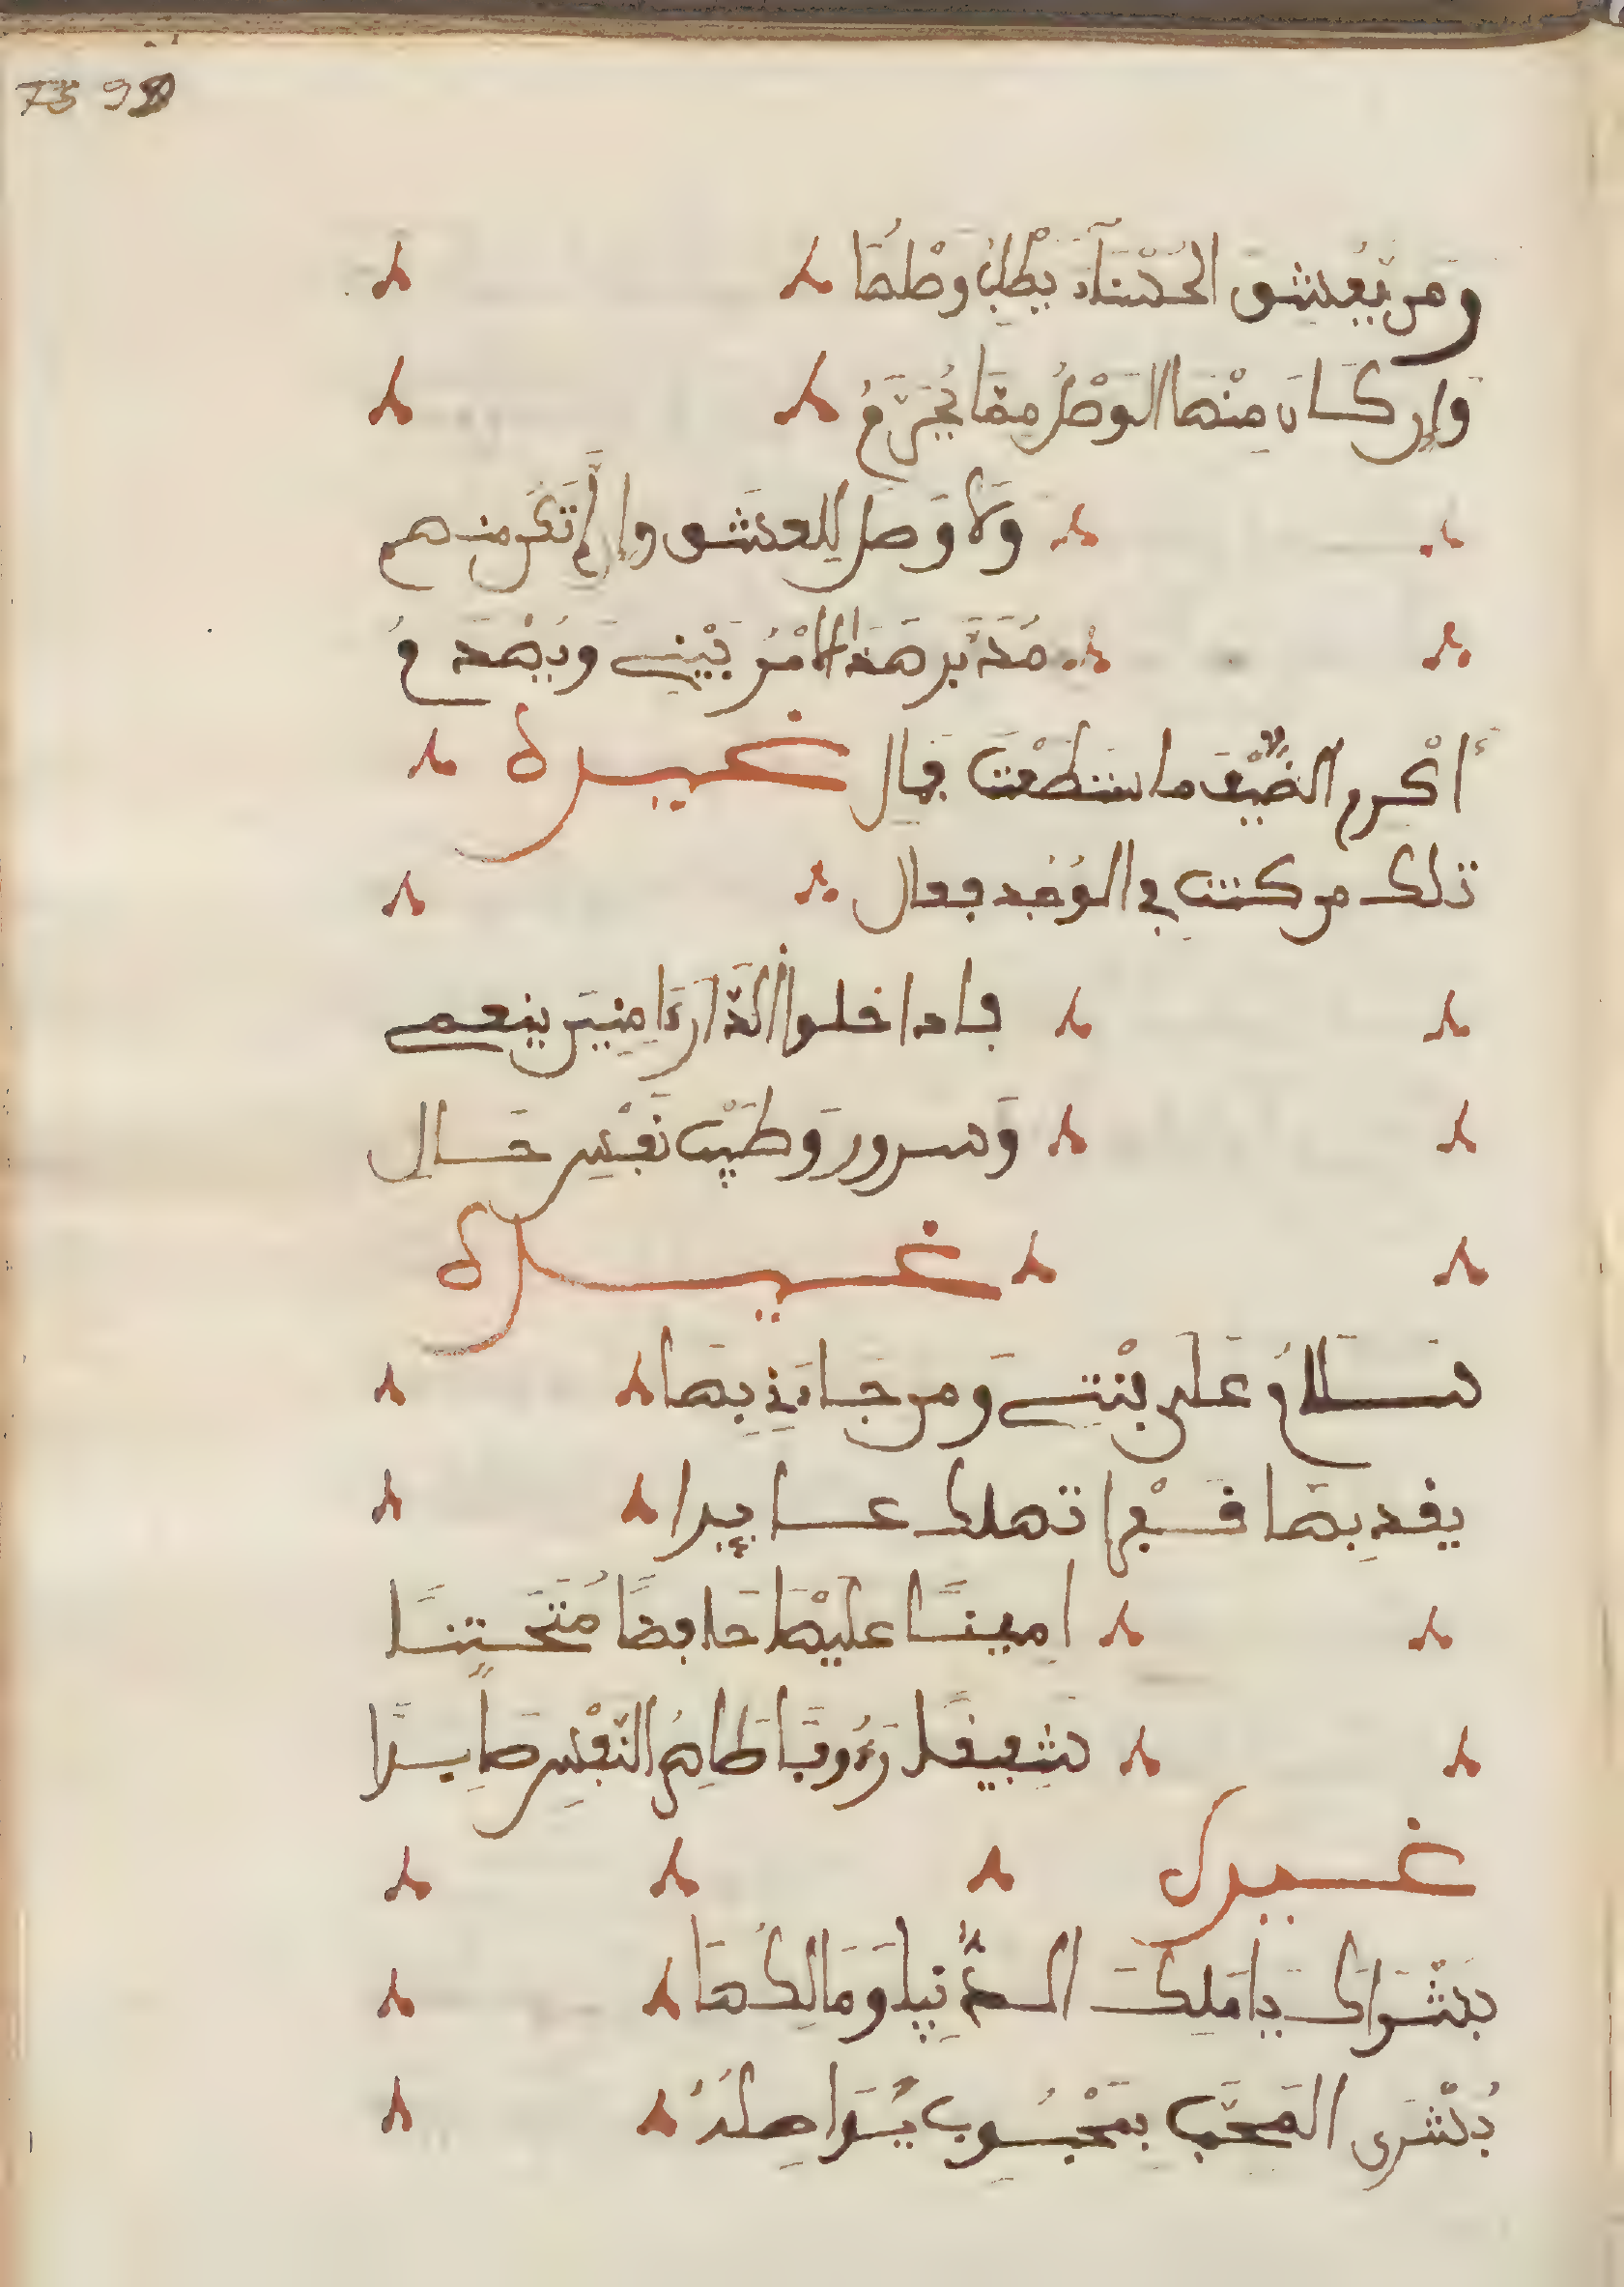 73 98
ومن يَعْشق الحُسْنَآءَ يطْلُبْ وصْلهَا
وَإن كَانَ مِنْهَا الوَصْلُ مِمَّا يُجَرَّعُ
وَلا وَصل للعشق وإن لَّم تَكُن منهم
مُدَبّر هَذَا الامْرُ بَيْنِي وَيَصْدَعُ
أَكْرم الضَّيْفَ ما ستطَعْتَ بمال غيره
ذلك من كنت في الوُجْد بعال
فادا خلوا الدَّارَ ءَامِنِينَ بنعمى
وَسرور وَطيْب نَفْسِ حَال
غيره
سَلامٌ عَلَى بنْتي وَمن جَاءَنِي بِهَا
يفدِ بِهَا فَسْعها تهلك عسايرا
امينًا عليْهَا حَافِضًا مُتَحَتنًا
شَفِيقًا رَءُوفًا طَاهِرُ النَّفْسِ صَابِرًا
غيره
بُشْرَاكَ يا مَلِكَ الدُّنْيَا وَمَالِكَهَا
بُشْرَى المُحَبّ بمَحْبُوبٍ يُوَاصِلُهُ